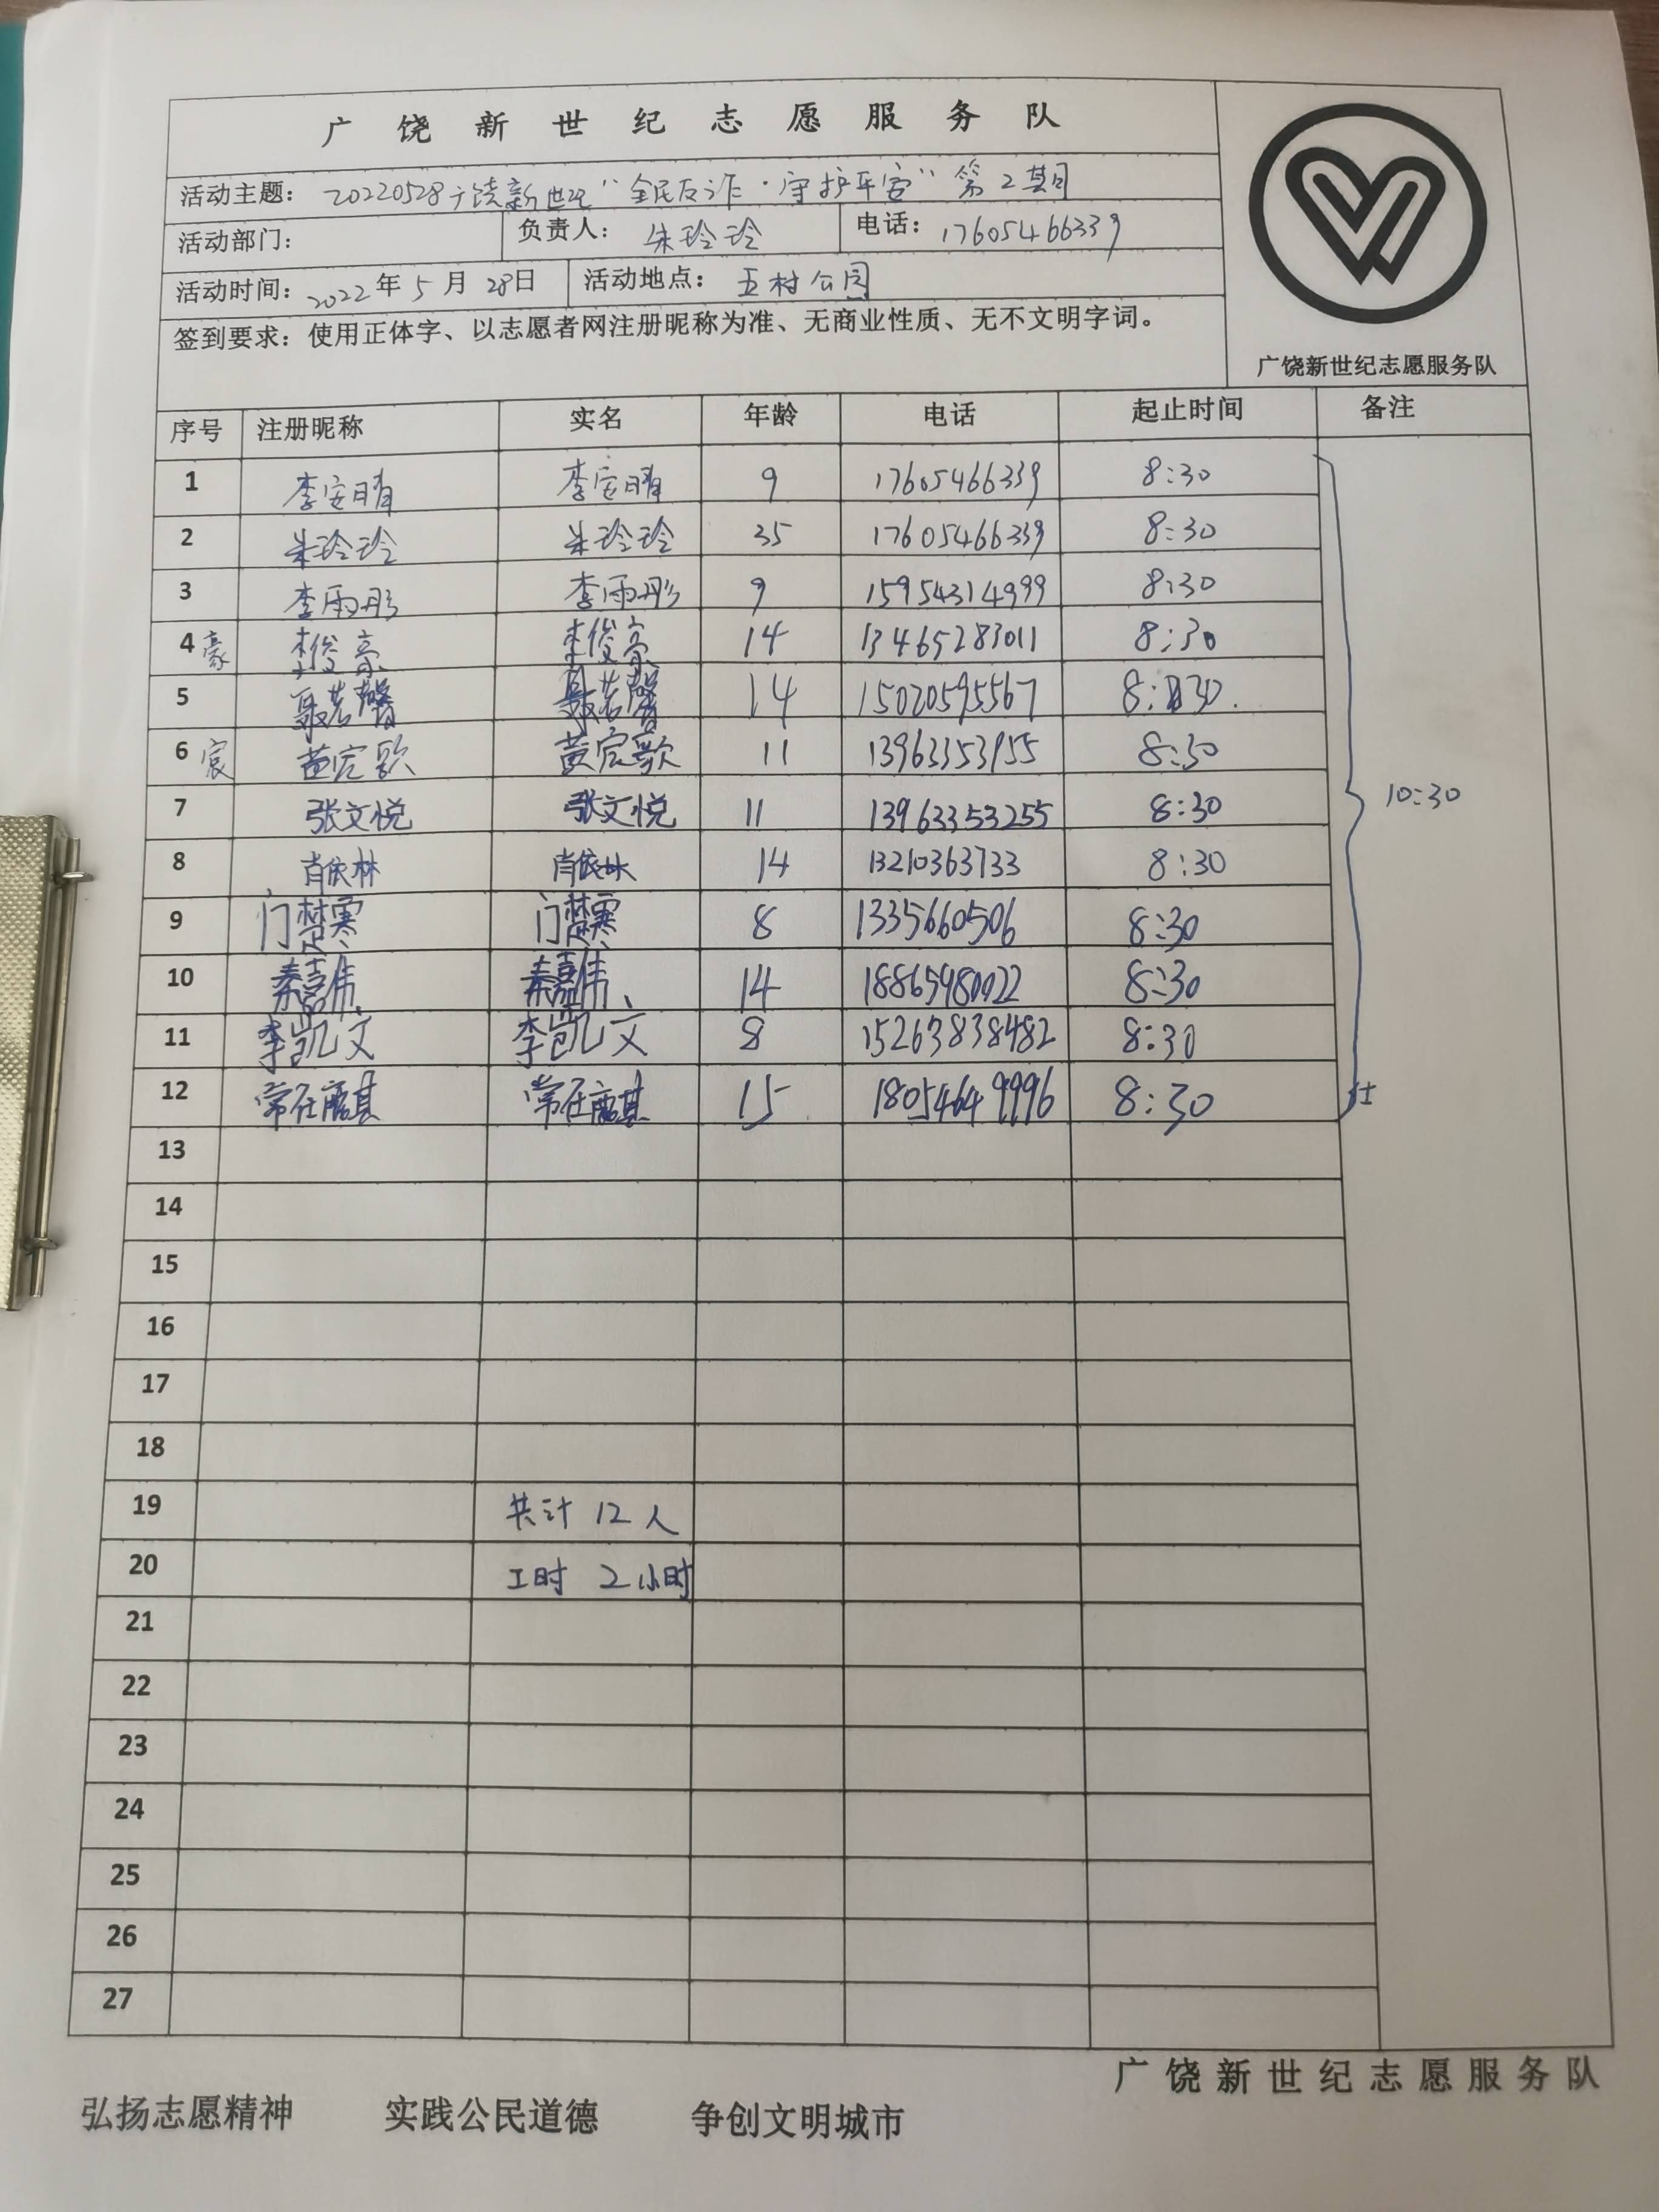 广饶新世纪志愿服务队
活动主题： 20220528广饶新世纪“全民反诈·守护平安”第2期
活动部门： 负责人： 朱玲玲 电话： 17605466339
活动时间： 2022年5月28日 活动地点： 五村公园
签到要求：使用正体字、以志愿者网注册昵称为准、无商业性质、无不文明字词。
广饶新世纪志愿服务队
序号 注册昵称 实名 年龄 电话 起止时间 备注
1 李安晴 李安晴 9 17605466339 8:30
2 朱玲玲 朱玲玲 35 17605466339 8:30
3 李雨彤 李雨彤 9 15954314999 8:30
4 豪 李俊豪 李俊豪 14 13465283011 8:30
5 聂若馨 聂若馨 14 15020595567 8:30.
6 宸 黄宸歌 黄宸歌 11 13963353955 8:30
7 张文悦 张文悦 11 13963353255 8:30
10:30
8 肖依林 肖依林 14 13210363733 8:30
9 门楚寒 门楚寒 8 1335660506 8:30
10 秦嘉伟 秦嘉伟 14 18865980022 8:30
11 李凯文 李凯文 8 15263838482 8:30
12 常任 常任 15 18054649996 8:30
13
14
15
16
17
18
19 共计 12人
20 工时 2小时
21
22
23
24
25
26
27
广饶新世纪志愿服务队
弘扬志愿精神 实践公民道德 争创文明城市